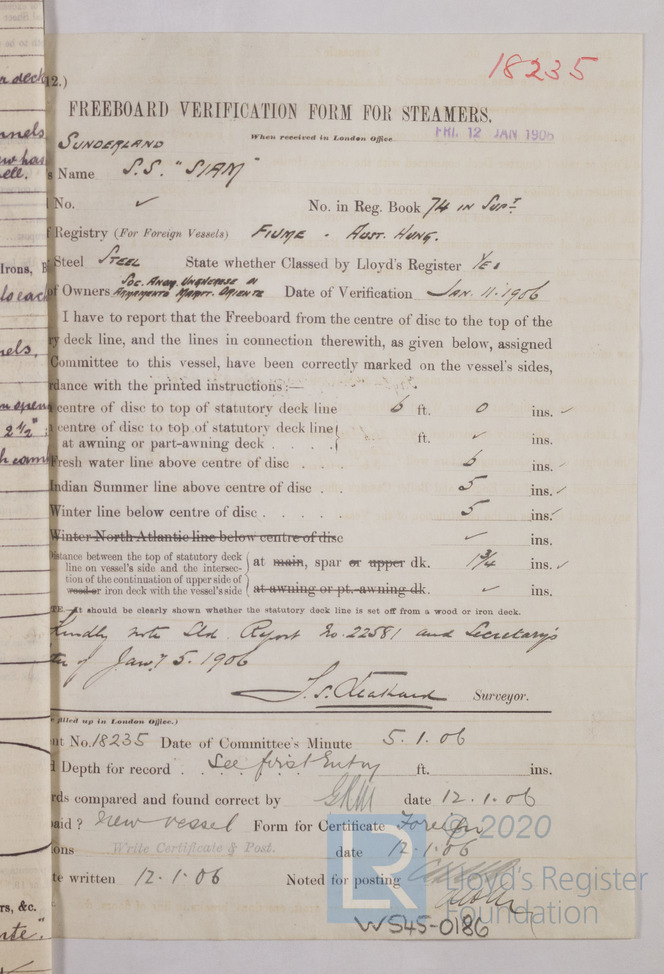 18235
12.)
FREEBOARD VERIFICATION FORM FOR STEAMERS.
When received in London Office FRI. 12 JAN 1906
SUNDERLAND
Name S.S. "SIAM"
No. ✓ No. in Reg. Book 74 IN SUPT
Registry (For Foreign Vessels) FIUME - AUST. HUNG.
Steel STEEL State whether Classed by Lloyd's Register YES
of Owners SOC. ANON. UNGHERESE DI ARMAMENTO MARITT. ORIENTE Date of Verification JAN. 11. 1906
I have to report that the Freeboard from the centre of disc to the top of the
deck line, and the lines in connection therewith, as given below, assigned
Committee to this vessel, have been correctly marked on the vessel's sides,
dance with the printed instructions:—
centre of disc to top of statutory deck line 6 ft. 0 ins. ✓
centre of disc to top of statutory deck line
at awning or part-awning deck . . . . ft. ✓ ins.
Fresh water line above centre of disc . 6 ins. ✓
Indian Summer line above centre of disc . . 5 ins. ✓
Winter line below centre of disc . . . . . 5 ins. ✓
Winter North Atlantic line below centre of disc ✓ ins.
Distance between the top of statutory deck
line on vessel's side and the intersec-
tion of the continuation of upper side of
wood or iron deck with the vessel's side
at main, spar or upper dk. 1 3/4 ins. ✓
at awning or pt.-awning dk. ✓ ins.
TE.—It should be clearly shown whether the statutory deck line is set off from a wood or iron deck.
Kindly note Sld Report No. 22581 and Secretary's
of Jany 5. 1906
Surveyor.
filled up in London Office.)
No. 18235 Date of Committee's Minute 5.1.06
Depth for record . See first Entry ft. ins.
rds compared and found correct by GRM date 12.1.06
paid? New vessel Form for Certificate Foreign
ions Write Certificate & Post. date 12.1.06
te written 12.1.06 Noted for posting
W545-0186
© 2020
LR
Lloyd's Register
Foundation
deck
Irons, B
2 1/2"
rs, &c.